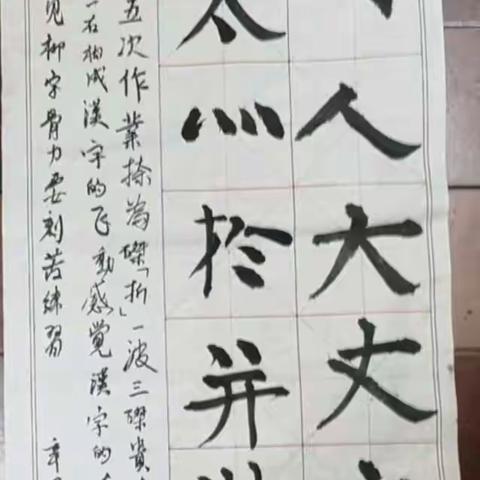 人大丈
太灬於并
五次作業捺為磔「折」一波三磔貴
一右构成漢字的飞動感覺漢字的
见柳字骨力要刻苦練習